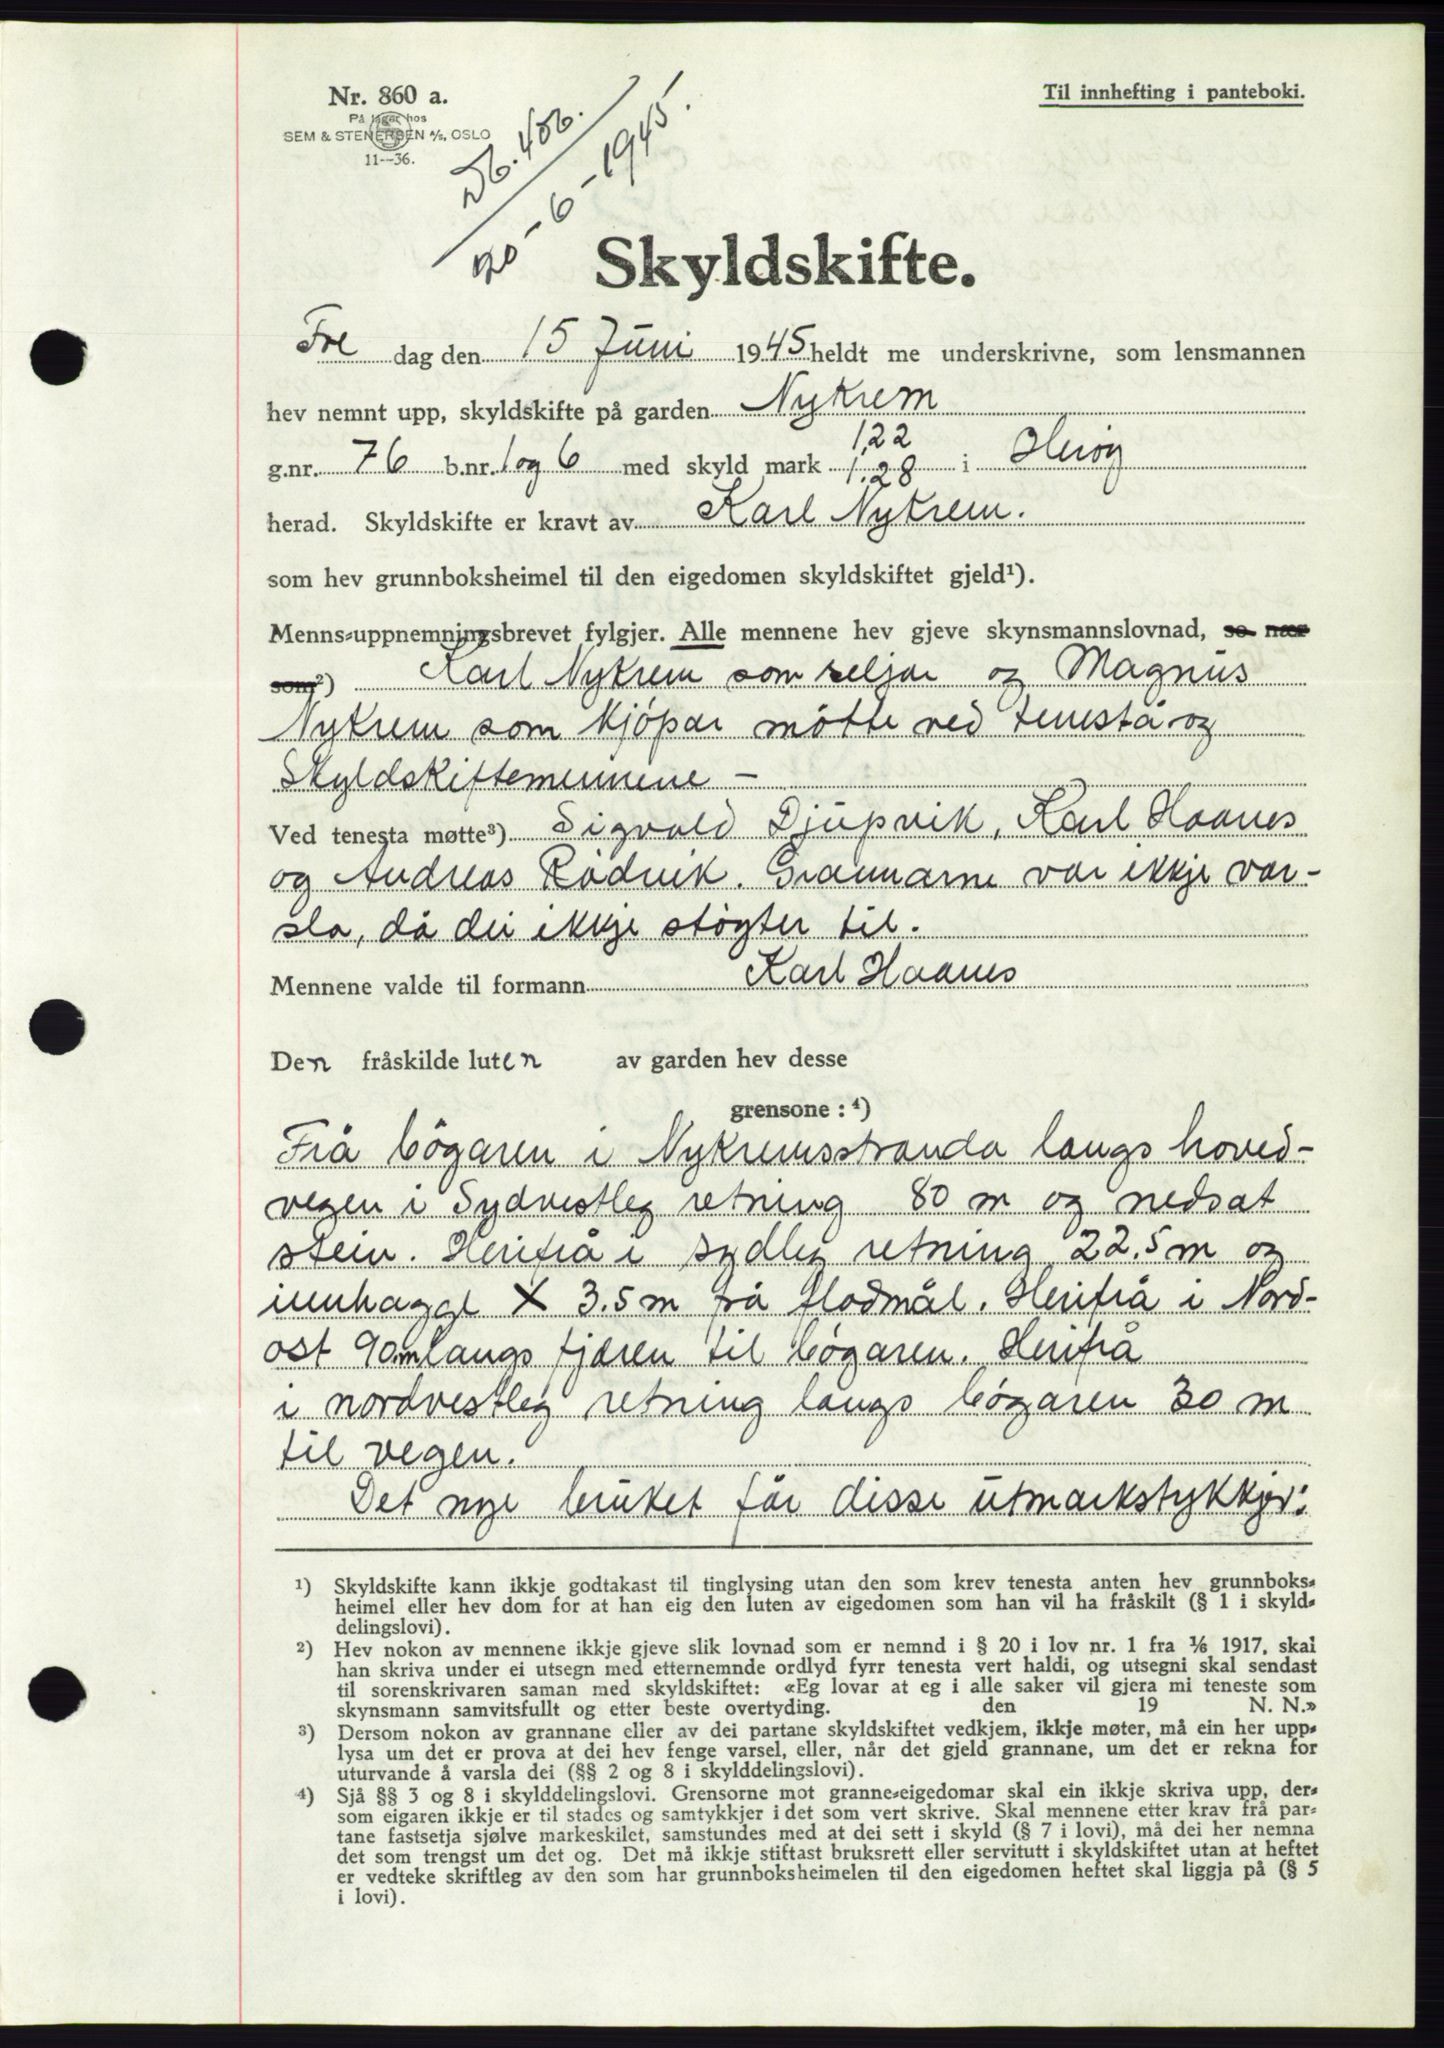 Nr. 860 a.
På lager hos
SEM & STENERSEN A/S, OSLO
11—36.
Til innhefting i panteboki.
Db. 406.
20-6-1945.
Skyldskifte.
Fre dag den 15 Juni 1945 heldt me underskrivne, som lensmannen
hev nemnt upp, skyldskifte på garden Nykrem
1,22
g.nr. 76 b.nr. 1 og 6 med skyld mark 1.28 i Herøy
herad. Skyldskifte er kravt av Karl Nykrem.
som hev grunnboksheimel til den eigedomen skyldskiftet gjeld¹).
Menns-uppnemningsbrevet fylgjer. Alle mennene hev gjeve skynsmannslovnad, so nær
som²) Karl Nykrem som seljar og Magnus
Nykrem som kjöpar mötte ved tenesta og
Skyldskiftemennene –
Ved tenesta møtte³) Sigvald Djupvik, Karl Haanes
og Andreas Rödvik. Grannarne var ikkje var-
sla, då dei ikkje stöyter til.
Mennene valde til formann Karl Haanes
Den fråskilde luten av garden hev desse
grensone: ⁴)
Frå bögaren i Nykremsstranda langs hoved-
vegen i Sydvestleg retning 80 m og nedsat
stein. Herifrå i sydleg retning 22.5 m og
innhaggt X 3.5 m frå flodmål. Herifrå i Nord-
ost 90 m langs fjæren til bögaren. Herifrå
i nordvestleg retning langs bögaren 30 m
til vegen.
Det nye bruket får disse utmarkstykkjer:
¹) Skyldskifte kann ikkje godtakast til tinglysing utan den som krev tenesta anten hev grunnboks-
heimel eller hev dom for at han eig den luten av eigedomen som han vil ha fråskilt (§ 1 i skyld-
delingslovi).
²) Hev nokon av mennene ikkje gjeve slik lovnad som er nemnd i § 20 i lov nr. 1 fra 1/6 1917, skal
han skriva under ei utsegn med etternemnde ordlyd fyrr tenesta vert haldi, og utsegni skal sendast
til sorenskrivaren saman med skyldskiftet: «Eg lovar at eg i alle saker vil gjera mi teneste som
skynsmann samvitsfullt og etter beste overtyding. den 19 N. N.»
³) Dersom nokon av grannane eller av dei partane skyldskiftet vedkjem, ikkje møter, må ein her upp-
lysa um det er prova at dei hev fenge varsel, eller, når det gjeld grannane, um det er rekna for
uturvande å varsla dei (§§ 2 og 8 i skylddelingslovi).
⁴) Sjå §§ 3 og 8 i skylddelingslovi. Grensorne mot granne-eigedomar skal ein ikkje skriva upp, der-
som eigaren ikkje er til stades og samtykkjer i det som vert skrive. Skal mennene etter krav frå par-
tane fastsetja sjølve markeskilet, samstundes med at dei sett i skyld (§ 7 i lovi), må dei her nemna
det som trengst um det og. Det må ikkje stiftast bruksrett eller servitutt i skyldskiftet utan at heftet
er vedteke skriftleg av den som har grunnboksheimelen til den eigedomen heftet skal liggja på (§ 5
i lovi).